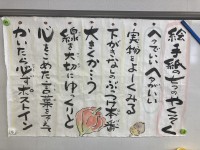 絵手紙の七つのやくそく
・ヘタでいい ヘタがいい
・実物をよーくみる
・下がきなしのぶっつけ本番
・大きくかこう
・線を大切にゆっくりと
・心をこめた言葉をそえて
・かいたら必ずポストイン